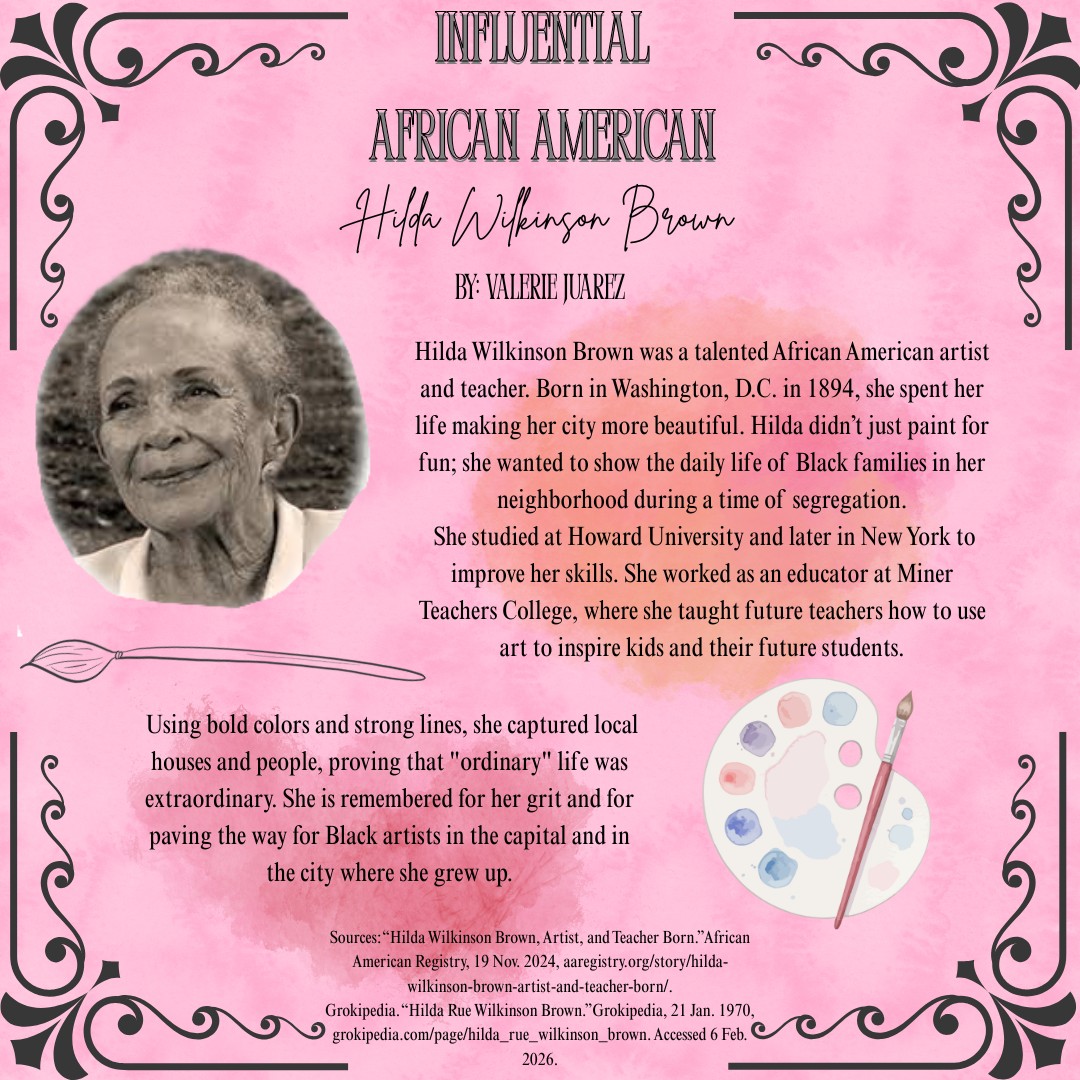 INFLUENTIAL
AFRICAN AMERICAN
Hilda Wilkinson Brown
BY: VALERIE JUAREZ
Hilda Wilkinson Brown was a talented African American artist
and teacher. Born in Washington, D.C. in 1894, she spent her
life making her city more beautiful. Hilda didn’t just paint for
fun; she wanted to show the daily life of Black families in her
neighborhood during a time of segregation.
She studied at Howard University and later in New York to
improve her skills. She worked as an educator at Miner
Teachers College, where she taught future teachers how to use
art to inspire kids and their future students.
Using bold colors and strong lines, she captured local
houses and people, proving that "ordinary" life was
extraordinary. She is remembered for her grit and for
paving the way for Black artists in the capital and in
the city where she grew up.
Sources: “Hilda Wilkinson Brown, Artist, and Teacher Born.”African
American Registry, 19 Nov. 2024, aaregistry.org/story/hilda-
wilkinson-brown-artist-and-teacher-born/.
Grokipedia. “Hilda Rue Wilkinson Brown.”Grokipedia, 21 Jan. 1970,
grokipedia.com/page/hilda_rue_wilkinson_brown. Accessed 6 Feb.
2026.